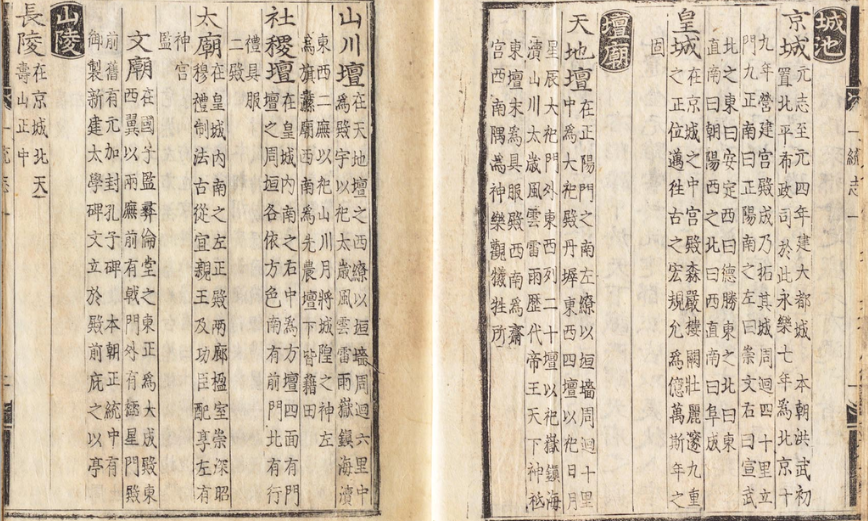 城池
京城 元志至元四年建大都城 本朝洪武初
置北平布政司於此永樂七年為北京十
九年營建宮殿成乃拓其城周迴四十里立
門九正南曰正陽南之左曰崇文右曰宣武
北之東曰安定西曰德勝東之北曰東
直南曰朝陽西之北曰西直南曰阜成
皇城 在京城之中宮殿森嚴樓闕壯麗邃九重
之正位邁徃古之宏規允為億萬斯年之
固
壇廟
天地壇 在正陽門之南左繚以垣墻周迴十里
中為大祀殿丹墀東西四壇以祀日月
星辰大祀門外東西列二十壇以祀嶽鎮海
瀆山川太歲風雲雷雨歷代帝王天下神祗
東壇末為具服殿西南為齋
宮西南隅為神樂觀犧牲所
一統志一
山川壇 在天地壇之西繚以垣墻周迴六里中
為殿宇以祀太歲風雲雷雨嶽鎮海瀆
東西二廡以祀山川月將城隍之神左
為旗纛廟西南為先農壇下皆藉田
社稷壇 在皇城內南之右中為方壇四面有門
壇之周垣各依方色南有前門北有行
禮具服
二殿
太廟 在皇城內南之左正殿兩廊楹室崇深昭
穆禮制法古從宜親王及功臣配享左有
神宮
監
文廟 在國子監彝倫堂之東正為大成殿東
西翼以兩廡前有戟門外有櫺星門殿
前舊有元加封孔子碑 本朝正統中有
御製新建太學碑文立於殿前庇之以亭
山陵
長陵 在京城北天
壽山正中
一統志一